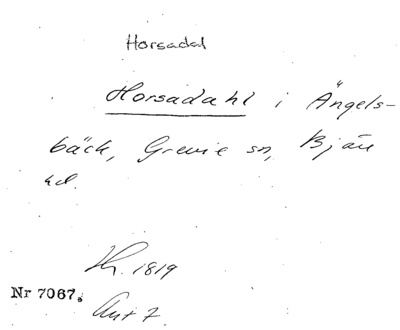 Horsadal
Horsadahl i Ängels-
bäck, Grevie sn, Bjäre
hd.
Kh. 1819
Nr 7067.
Ant 7